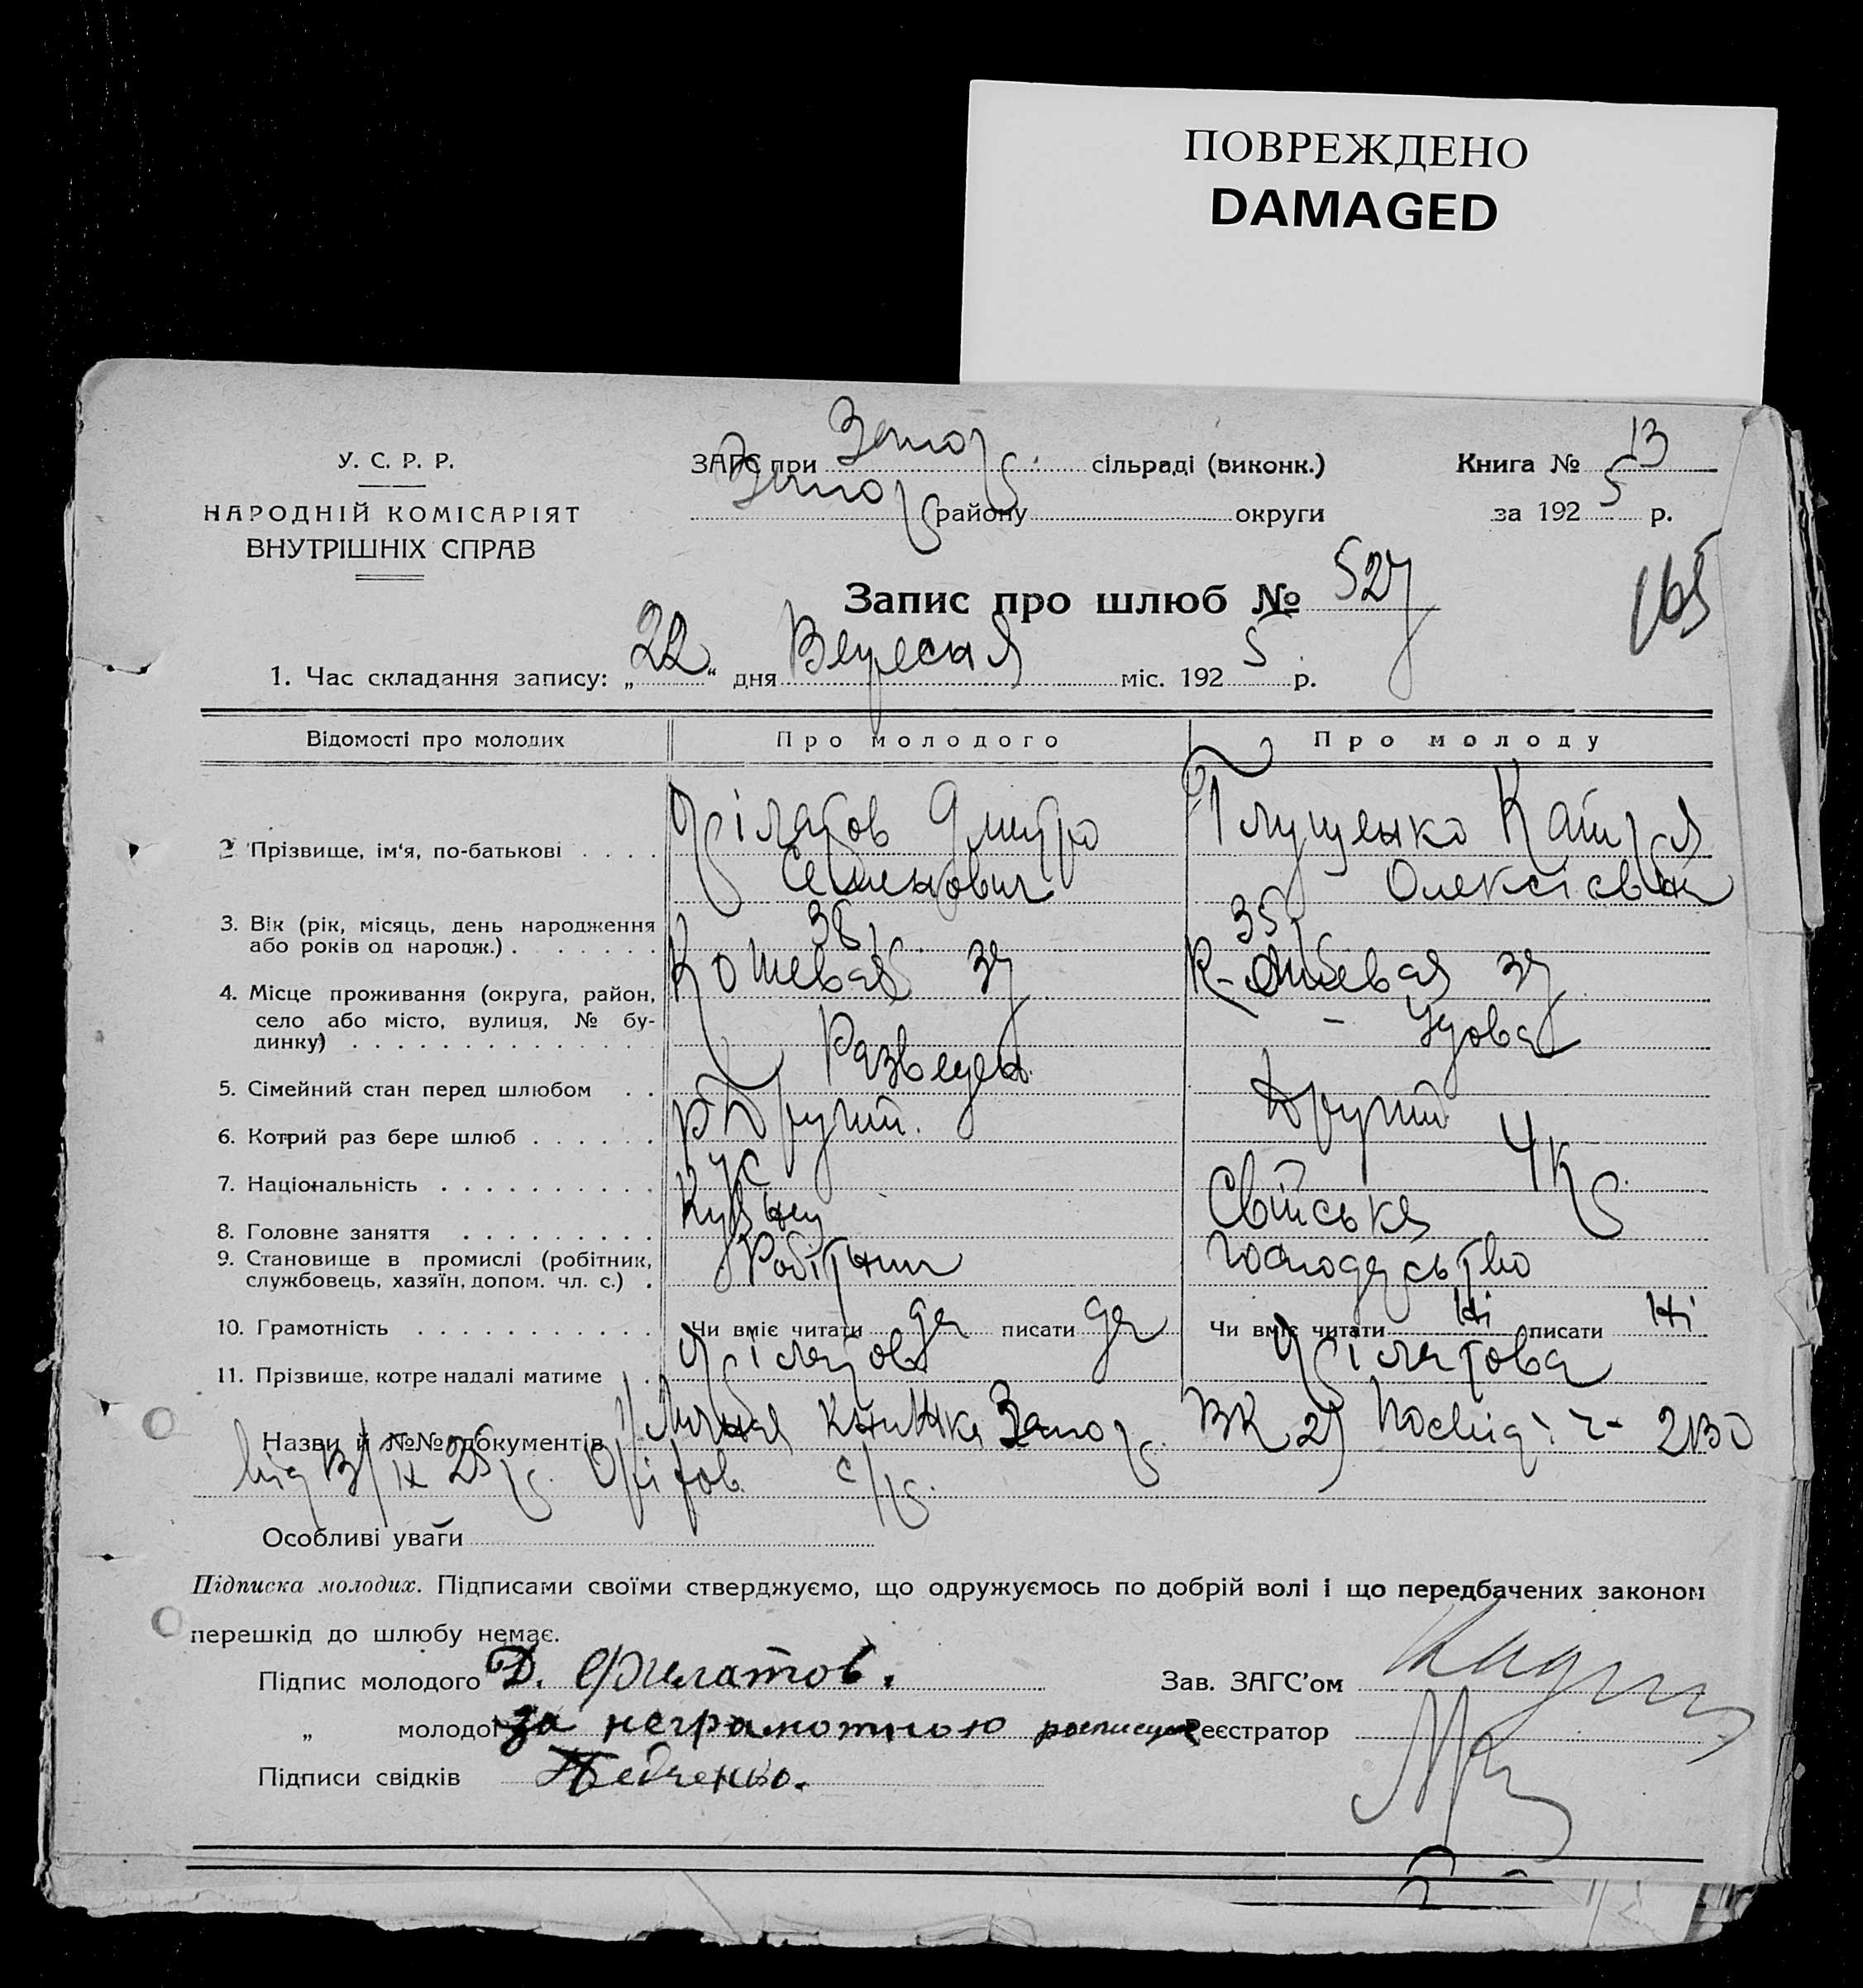 ПОВРЕЖДЕНО
DAMAGED
У. С. Р. Р.
НАРОДНІЙ КОМІСАРІЯТ
ВНУТРІШНІХ СПРАВ
ЗАГС при Запор. сільраді (виконк.)
Запор району округи
Книга № 13
за 1925 р.
Запис про шлюб № 527
165
1. Час складання запису: „22“ дня Вересня міс. 1925 р.
Відомості про молодих Про молодого Про молоду
2 Прізвище, ім'я, по-батькові . . . . Філатов Дмитро Глущенко Катря
Семенович Олексієвна
3. Вік (рік, місяць, день народження
або років од народж.) . . . . . . . 38 35
4. Місце проживання (округа, район,
село або місто, вулиця, № бу-
динку) . . . . . . . . . . . . . . Кошевая 37 37
5. Сімейний стан перед шлюбом . . Разведен Удова
6. Котрий раз бере шлюб . . . . . . Другий. Другий
7. Національність . . . . . . . . . . Укр
8. Головне заняття . . . . . . . . . Свійське
9. Становище в промислі (робітник,
службовець, хазяїн, допом. чл. с.) . Робітник господарство
10. Грамотність . . . . . . . . . . . Чи вміє читати да писати да Чи вміє читати ні писати ні
11. Прізвище, котре надалі матиме . Філатов Філатова
Назви й №№ документів Книжка Запор. ВК 27 2130
від 13/IX 25 р. с/р.
Особливі уваги
Підписка молодих. Підписами своїми стверджуємо, що одружуємось по добрій волі і що передбачених законом
перешкід до шлюбу немає.
Підпис молодого Д. Филатов. Зав. ЗАГС'ом
„ молодої за неграмотною Реєстратор
Підписи свідків